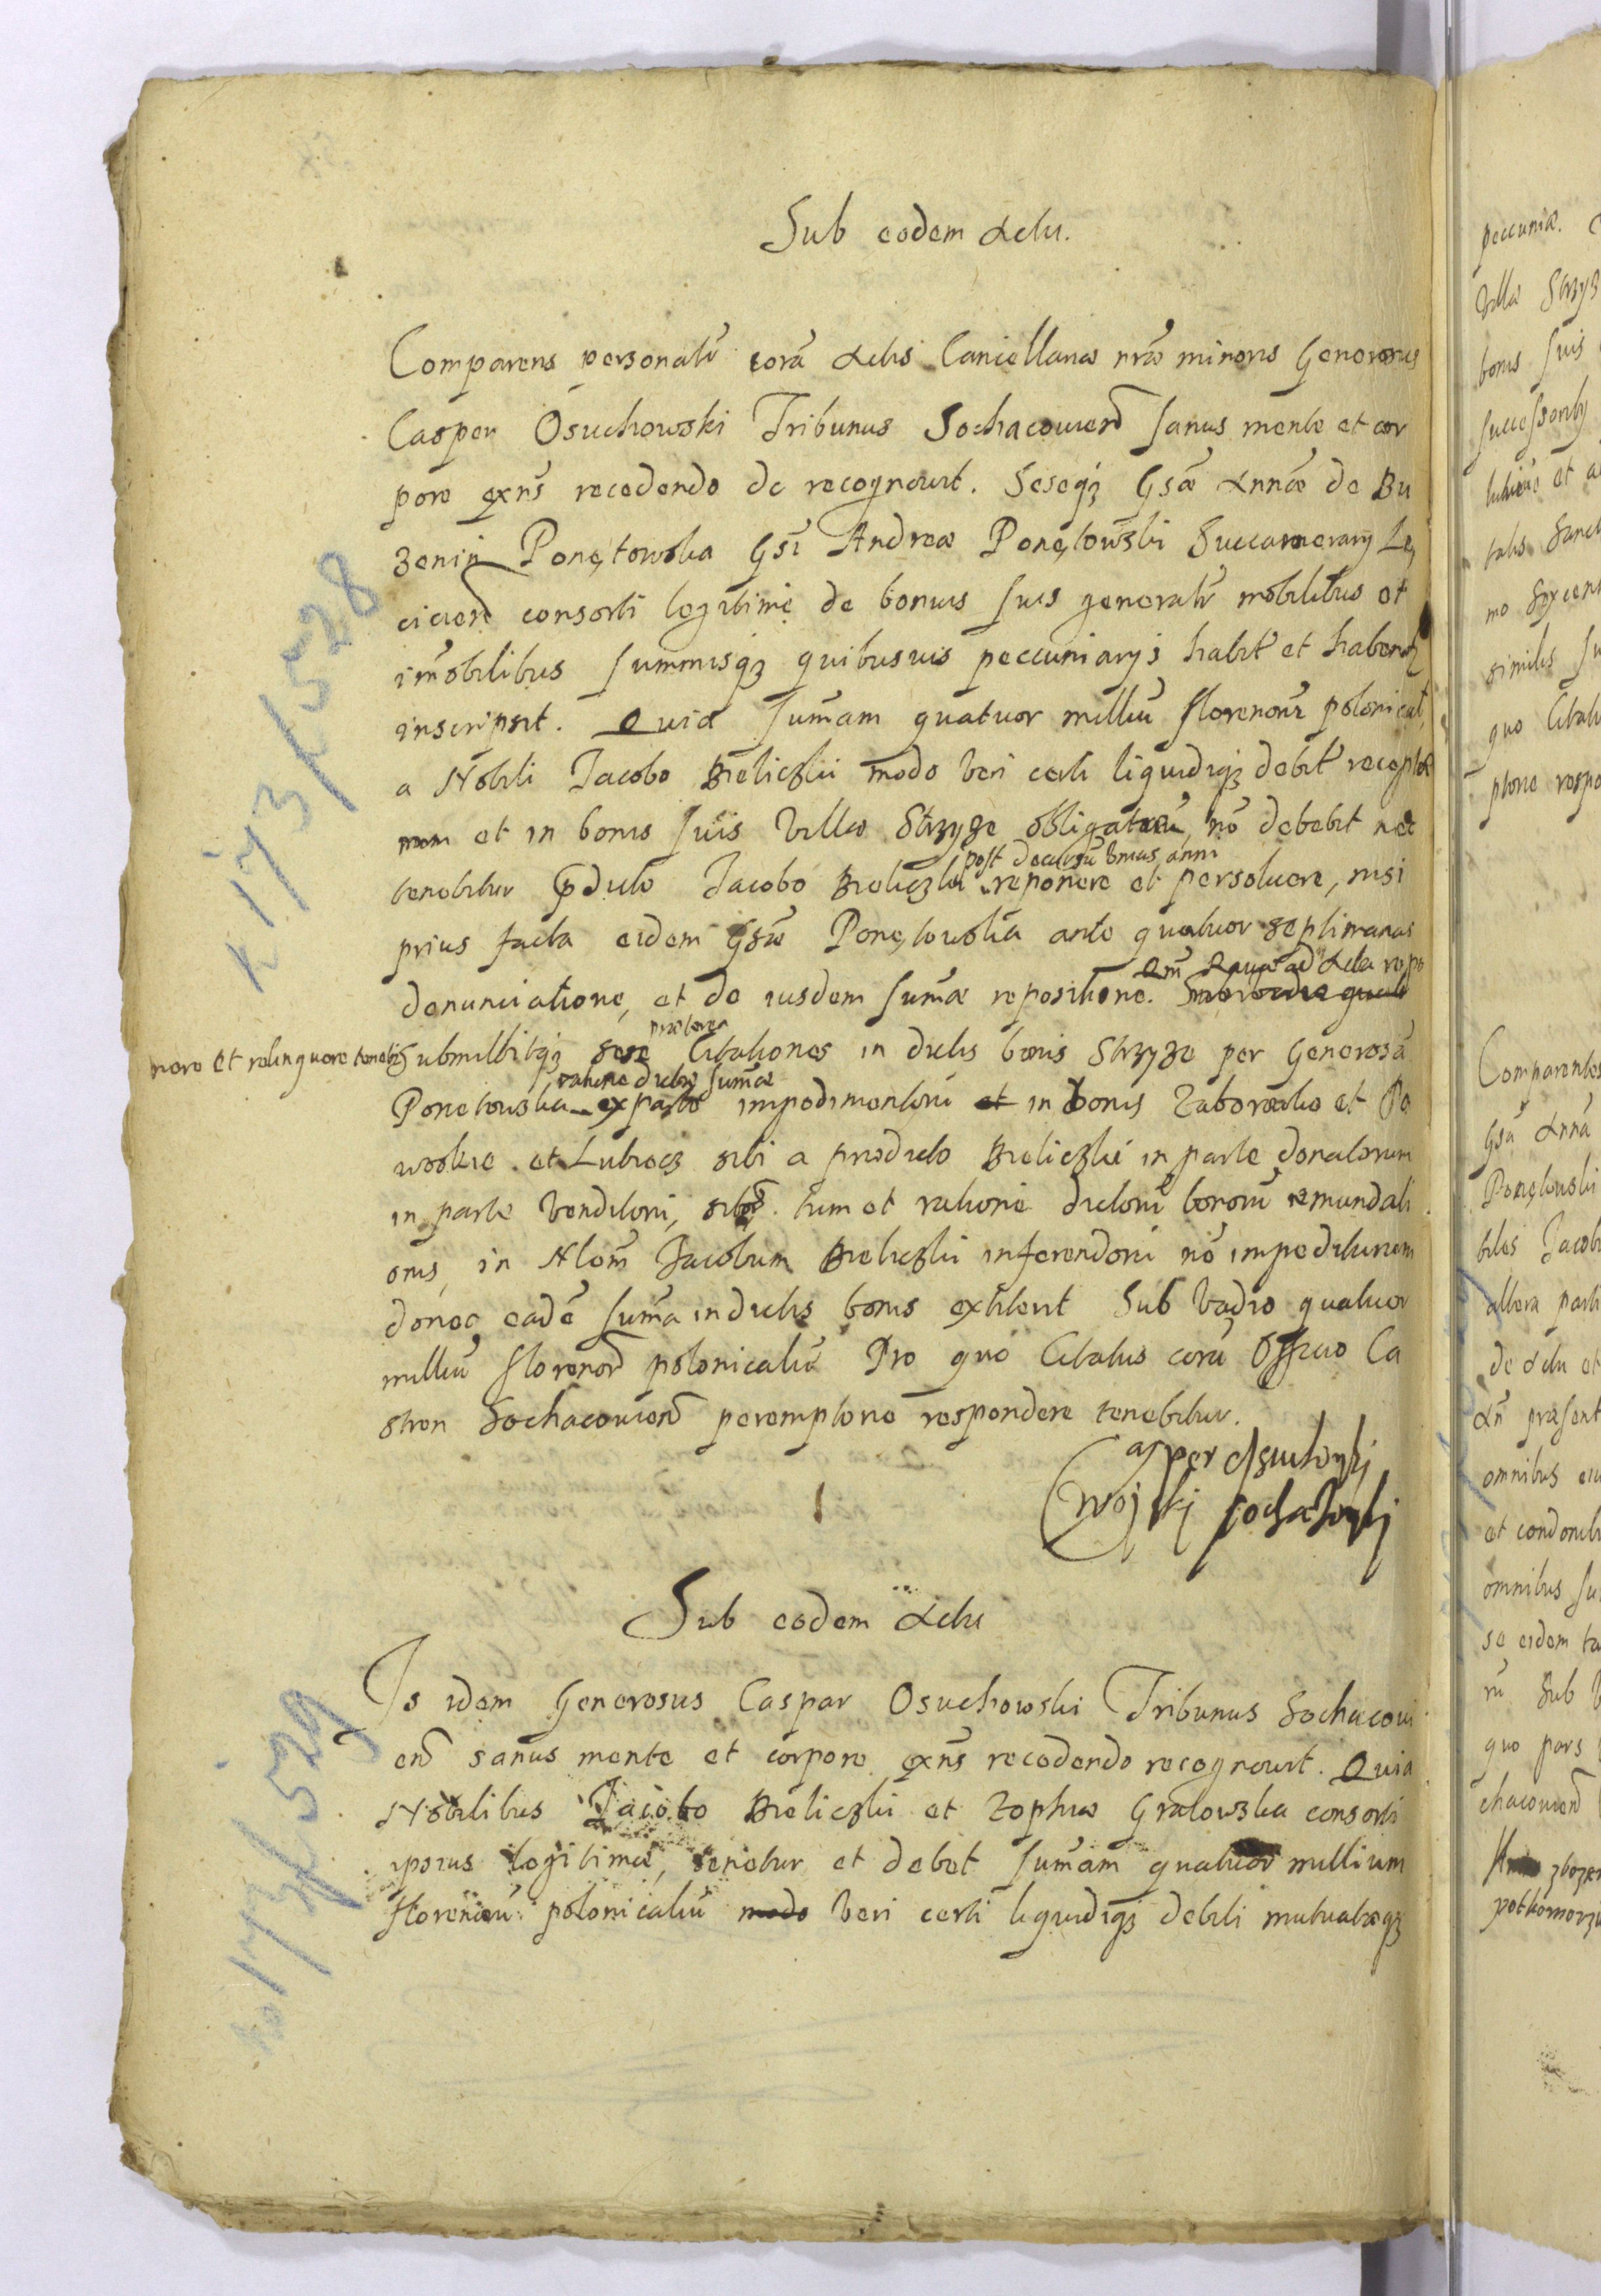 Sub eodem Actu.
Comparens personalr̃ corã Actis Cancellariæ nræ̃ minoris Generosus
Casper Osuchowski Tribunus Sochacouien̄ sanus mente et cor
pore exñs recedendo de recognouit. Seseq₃ Gsæ̃ Annæ de Bu
zenin Ponętowska Gsĩ Andreæ Ponętowski Succamerarij Lę
cicien̄ consorti legitimę de bonis suis generalr̃ mobilibus et
im̃obilibus summisq₃ quibusuis peccuniarijs habit̃ et habend
inscripsit. Quia sum̃am quatuor milliũ florenorũ polonical
a Nobili Jacobo Bieliczki modo veri certi liquidiq₃ debit̃ recepta
mm et in bonis suis Villæ Strzyze obligatam, nõ debebit nec
tenebitur p̃dicto Jacobo Bieliczki post decursũ vnius anni reponere et persoluere, nisi
prius facta eidem Gsæ̃ Ponętowska ante quatuor septimanas
denunciatione, et de iusdem sum̃æ repositione. ad Acta repo
nere et relinquere tenebit̃ Submittitq₃ sese præterea Citationes in dictis bonis Strzyze per Generosã
Ponetowska ratione dictæ sum̃æ ex parte impedimentorũ et in bonis Zaborowko et Pa
wskie et Lubiecz sibi a prædicto Bieliczki in parte donatorum
in parte venditorũ, tum et ratione dictorũ bonorũ emundati
onis, in Nlem̃ Jacobum Bieliczki inferendorũ nõ impediturum
donec eadẽ sum̃a in dictis bonis extiterit Sub Vadio quatuor
milliũ florenor̃ polonicaliũ Pro quo Citatus corã Officio Ca
stren Sochacouien̄ peremptorie respondere tenebitur.
Casper Osuchowski
Wojski sochaczewski
Sub eodem Actu
Is idem Generosus Caspar Osuchowski Tribunus Sochacoui
en̄ sanus mente et corpore exñs recedendo recognouit. Quia
Nobilibus Jacobo Bieliczki et Zophiæ Gratowska consorti
ipsius legitimæ, tenetur et debet sum̃am quatuor millium
florenorũ polonicaliũ modo veri certi liquidiq₃ debiti mutuatæq₃
k 173 / 528
ko 173 / 529
peccuniæ.
Villæ Strzyz
bonis suis
successorib₃
et a
talis
mo
similis su
quo Citatu
ptorie respo
Comparentes
Gsã Annã
Ponętowski
biles Jacob
altera parti
de Actu et
præsent
omnibus
et condonati
omnibus su
se eidem ta
rũ Sub V
quo pars
chacouien̄